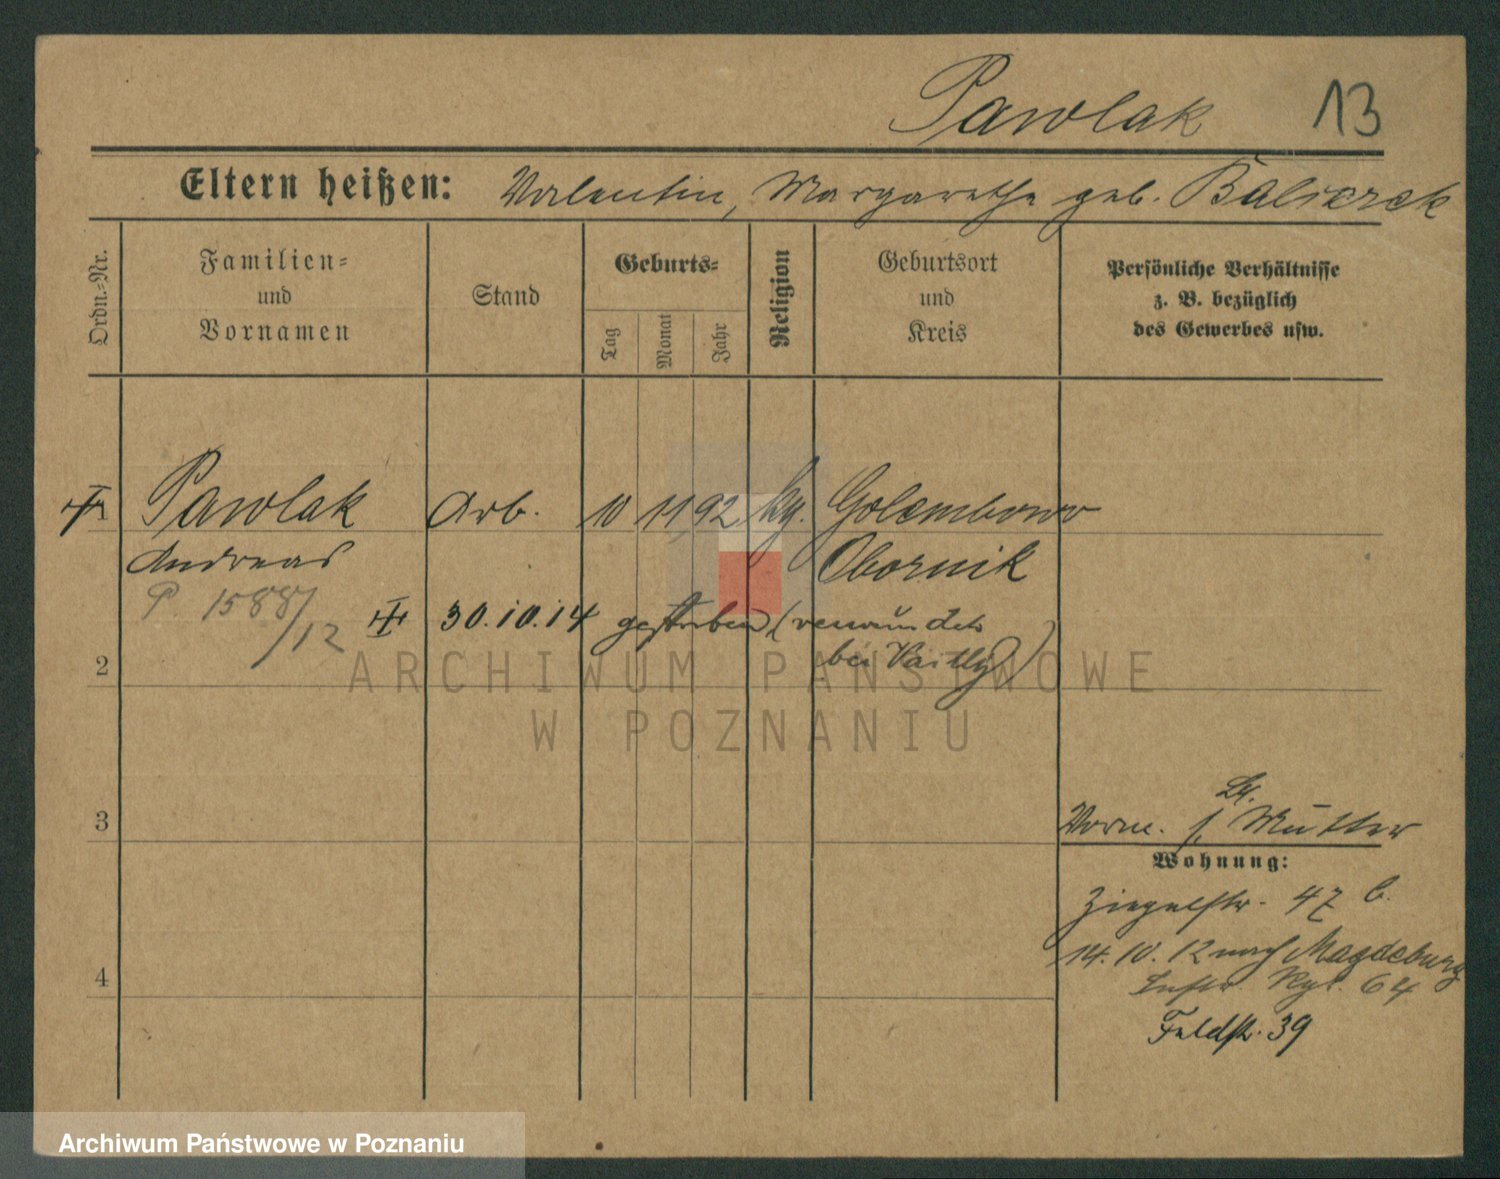 Pawlak 13
Eltern heißen: Valentin, Margarethe geb. Balicrek
Ordn.=Nr.
Familien=
und
Vornamen
Stand
Geburts=
Tag
Monat
Jahr
Religion
Geburtsort
und
Kreis
Persönliche Verhältnisse
z. B. bezüglich
des Gewerbes usw.
1 Pawlak Arb. 10 11 92 kg. Golembowo
Andreas Obornik
P. 15887/12 30.10.14 gestorben (verwundet
bei Vailly)
2
3
Vorm. s. Mutter
Wohnung:
Ziegelstr. 47 b.
14.10.12 nach Magdeburg
4
Inftr. Rgt. 64
Feldstr. 39
ARCHIWUM PAŃSTWOWE
W POZNANIU
Archiwum Państwowe w Poznaniu